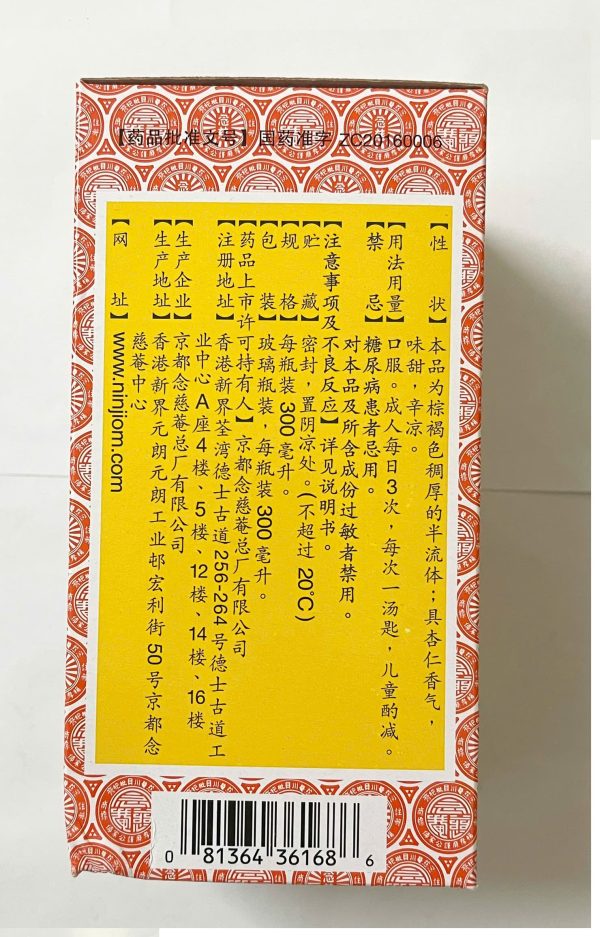 【药品批准文号】国药准字 ZC20160006
【性 状】本品为棕褐色稠厚的半流体；具杏仁香气，
味甜，辛凉。
【用法用量】口服。成人每日3次，每次一汤匙，儿童酌减。
【禁 忌】糖尿病患者忌用。
对本品及所含成份过敏者禁用。
【注意事项及不良反应】详见说明书。
【贮 藏】密封，置阴凉处。(不超过 20°C)
【规 格】每瓶装 300 毫升。
【包 装】玻璃瓶装，每瓶装 300 毫升。
【药品上市许可持有人】京都念慈菴总厂有限公司
【注册地址】香港新界荃湾德士古道256-264号德士古道工
业中心A座4楼、5楼、12楼、14楼、16楼
【生产企业】京都念慈菴总厂有限公司
【生产地址】香港新界元朗元朗工业邨宏利街50号京都念
慈菴中心
【网 址】www.ninjiom.com
0 81364 36168 6